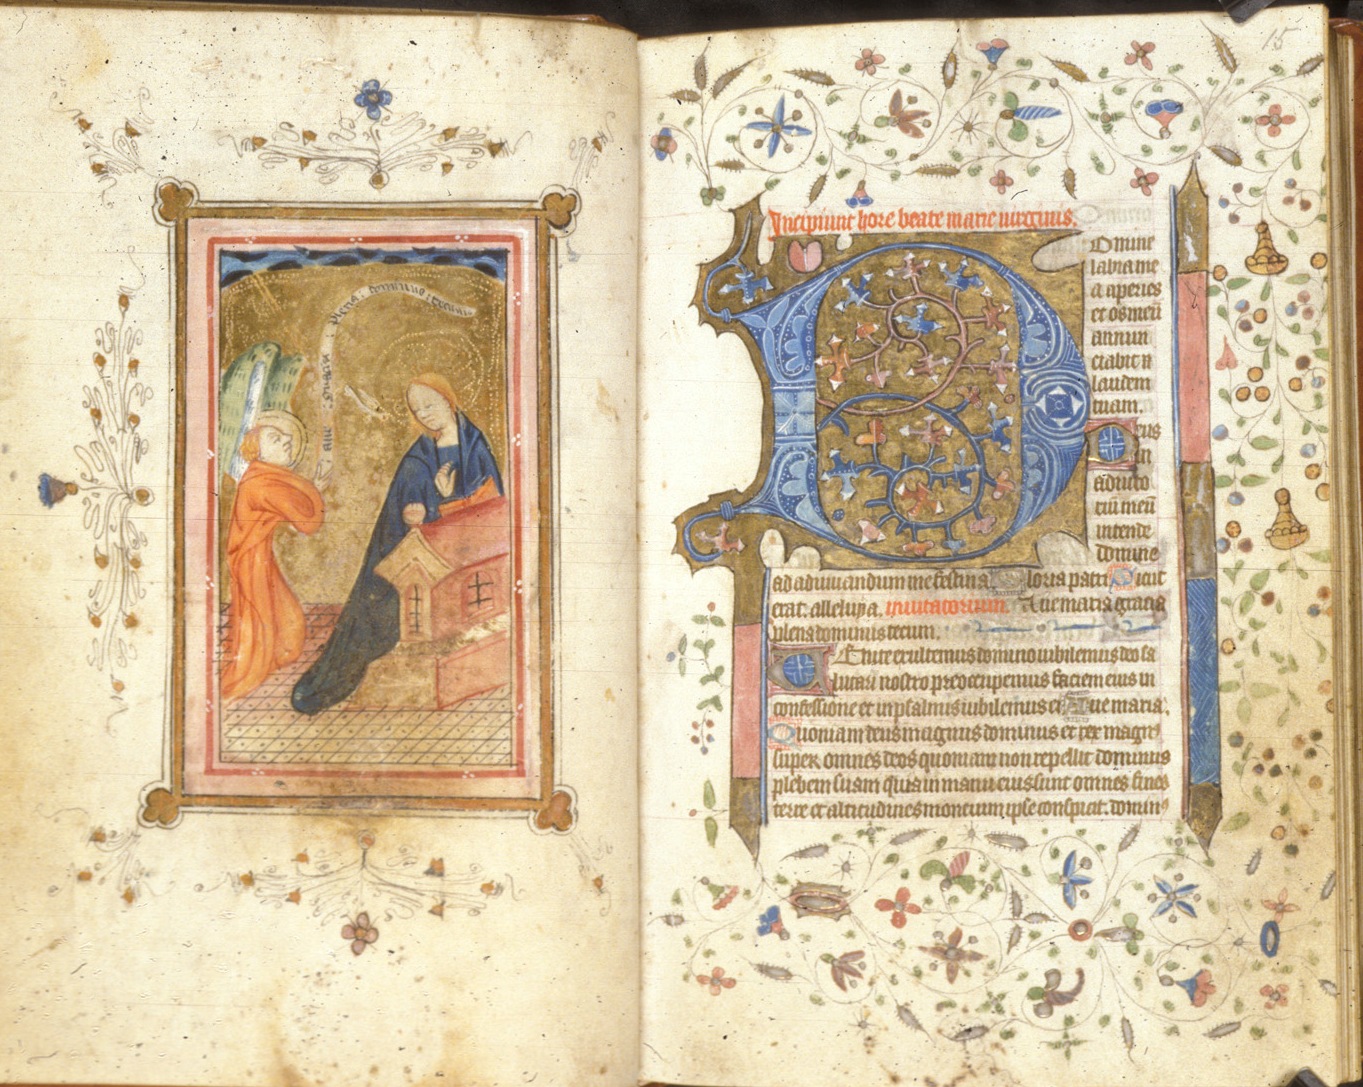 ave : gracia : plena : dominus : tecum
15
Incipiunt hore beate marie uirginis.
Domine
labia me
a aperies
et os meū
annun
ciabit n
laudem
tuam.
Deus
in
adiuto
riū meū
intende
domine
ad adiuuandum me festina Gloria patri Sicut
erat. alleluya. inuitatorium. Aue maria gracia
plena dominus tecum.
Uenite exultemus domino iubilemus deo sa
lutari nostro preoccupemus faciem eius in
confessione et in psalmis iubilemus ei Aue maria.
Quoniam deus magnus dominus et rex magnꝰ
super omnes deos quoniam non repellit dominus
plebem suam quia in manu eius sunt omnes fines
terre et altitudines moncium ipse conspicit. dominꝰ